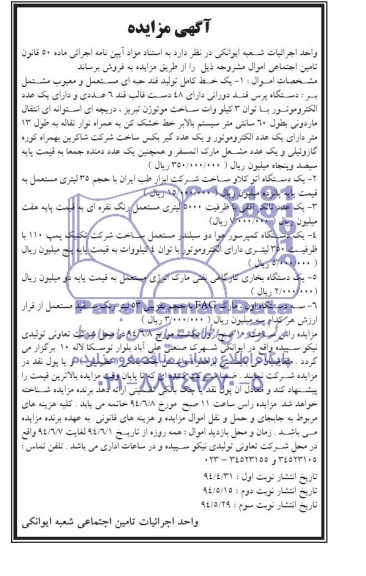 آگهی مزایده
واحد اجرائیات شعبه ایوانکی در نظر دارد به استناد مواد آیین نامه اجرائی ماده ۵۰ قانون
تامین اجتماعی اموال مشروحه ذیل را از طریق مزایده به فروش برساند
مشخصات اموال : ۱- یک خط کامل تولید قند حبه ای مستعمل و معیوب مشتمل
بر : دستگاه پرس قند دورانی دارای ۴۸ دست قالب قند ۶ عددی و دارای یک عدد
الکتروموتور با توان ۳ کیلو وات ساخت موتوژن تبریز ، دریچه ای استوانه ای انتقال
ماردونی بطول ۶۰ سانتی متر سیستم بالابر خط خشک کن به همراه نوار نقاله به طول ۱۳
متر دارای یک عدد الکتروموتور و یک عدد گیر بکس ساخت شرکت شاکرین بهمراه کوره
گازوئیلی و یک عدد مشعل مارک اتمسفر و همچنین یک عدد دمنده جمعا به قیمت پایه
سیصد وپنجاه میلیون ریال ( ۳۵۰/۰۰۰/۰۰۰ ریال )
۲- یک دستگاه اتو کلاو ساخت شرکت ابزار طب ایران با حجم ۳۵ لیتری مستعمل به
قیمت پایه پانزده میلیون ریال ( ۱۵/۰۰۰/۰۰۰ ریال )
۳- یک عدد تانکر افقی با ظرفیت ۵۰۰۰ لیتری مستعمل رنگ نقره ای به قیمت پایه هفت
میلیون ریال ( ۷/۰۰۰/۰۰۰ ریال )
۴- یک دستگاه کمپرسور هوا دو سیلندر مستعمل ساخت شرکت تکنیک پمپ ۱۱۰ با
ظرفیت ۳۵۰ لیتری دارای الکتروموتور با توان ۴ کیلووات به قیمت پایه پنج میلیون ریال
( ۵/۰۰۰/۰۰۰ ریال )
۵- یک دستگاه بخاری کارگاهی نفتی مارک انرژی مستعمل به قیمت پایه دو میلیون ریال
( ۲/۰۰۰/۰۰۰ ریال )
۶- سه دستگاه اون مارک FAG با حجم تقریبی ۵۳ لیتر رنگ سفید مستعمل از قرار
ارزش هر کدام سه میلیون ریال ( ۳/۰۰۰/۰۰۰ ریال )
مزایده راس ساعت ۱۰ صبح روز یکشنبه مورخ ۹۴/۶/۸ در محل شرکت تعاونی تولیدی
نیکو سپیده واقع در ایوانکی شهرک صنعتی بلوار توسکا لاله ۱۰ برگزار می
گردد
مزایده شرکت نمایند
پیشنهاد کند و معادل آن پول نقد یا چک بانکی تضمینی ارائه دهد برنده مزایده شناخته
خواهد شد. مزایده راس ساعت ۱۱ صبح مورخ ۹۴/۶/۸ خاتمه می یابد . کلیه هزینه های
مربوط به جابجای و حمل و نقل اموال مزایده و هزینه های قانونی به عهده برنده مزایده
می باشد . زمان و محل بازدید اموال : همه روزه از تاریخ ۹۴/۶/۱ لغایت ۹۴/۶/۷ واقع
در محل شرکت تعاونی تولیدی نیکو سپیده و در ساعات اداری می باشد . تلفن تماس :
۳۴۵۲۳۱۰۵ و ۳۴۵۲۳۱۵۵ – ۰۲۳
تاریخ انتشار نوبت اول : ۹۴/۴/۳۱
تاریخ انتشار نوبت دوم : ۹۴/۵/۱۵
تاریخ انتشار نوبت سوم : ۹۴/۵/۲۹
واحد اجرائیات تامین اجتماعی شعبه ایوانکی
ParsNamadData
پایگاه اطلاع رسانی مناقصه و مزایده
۰۲۱-۸۸۳۴۹۶۷۰-۵